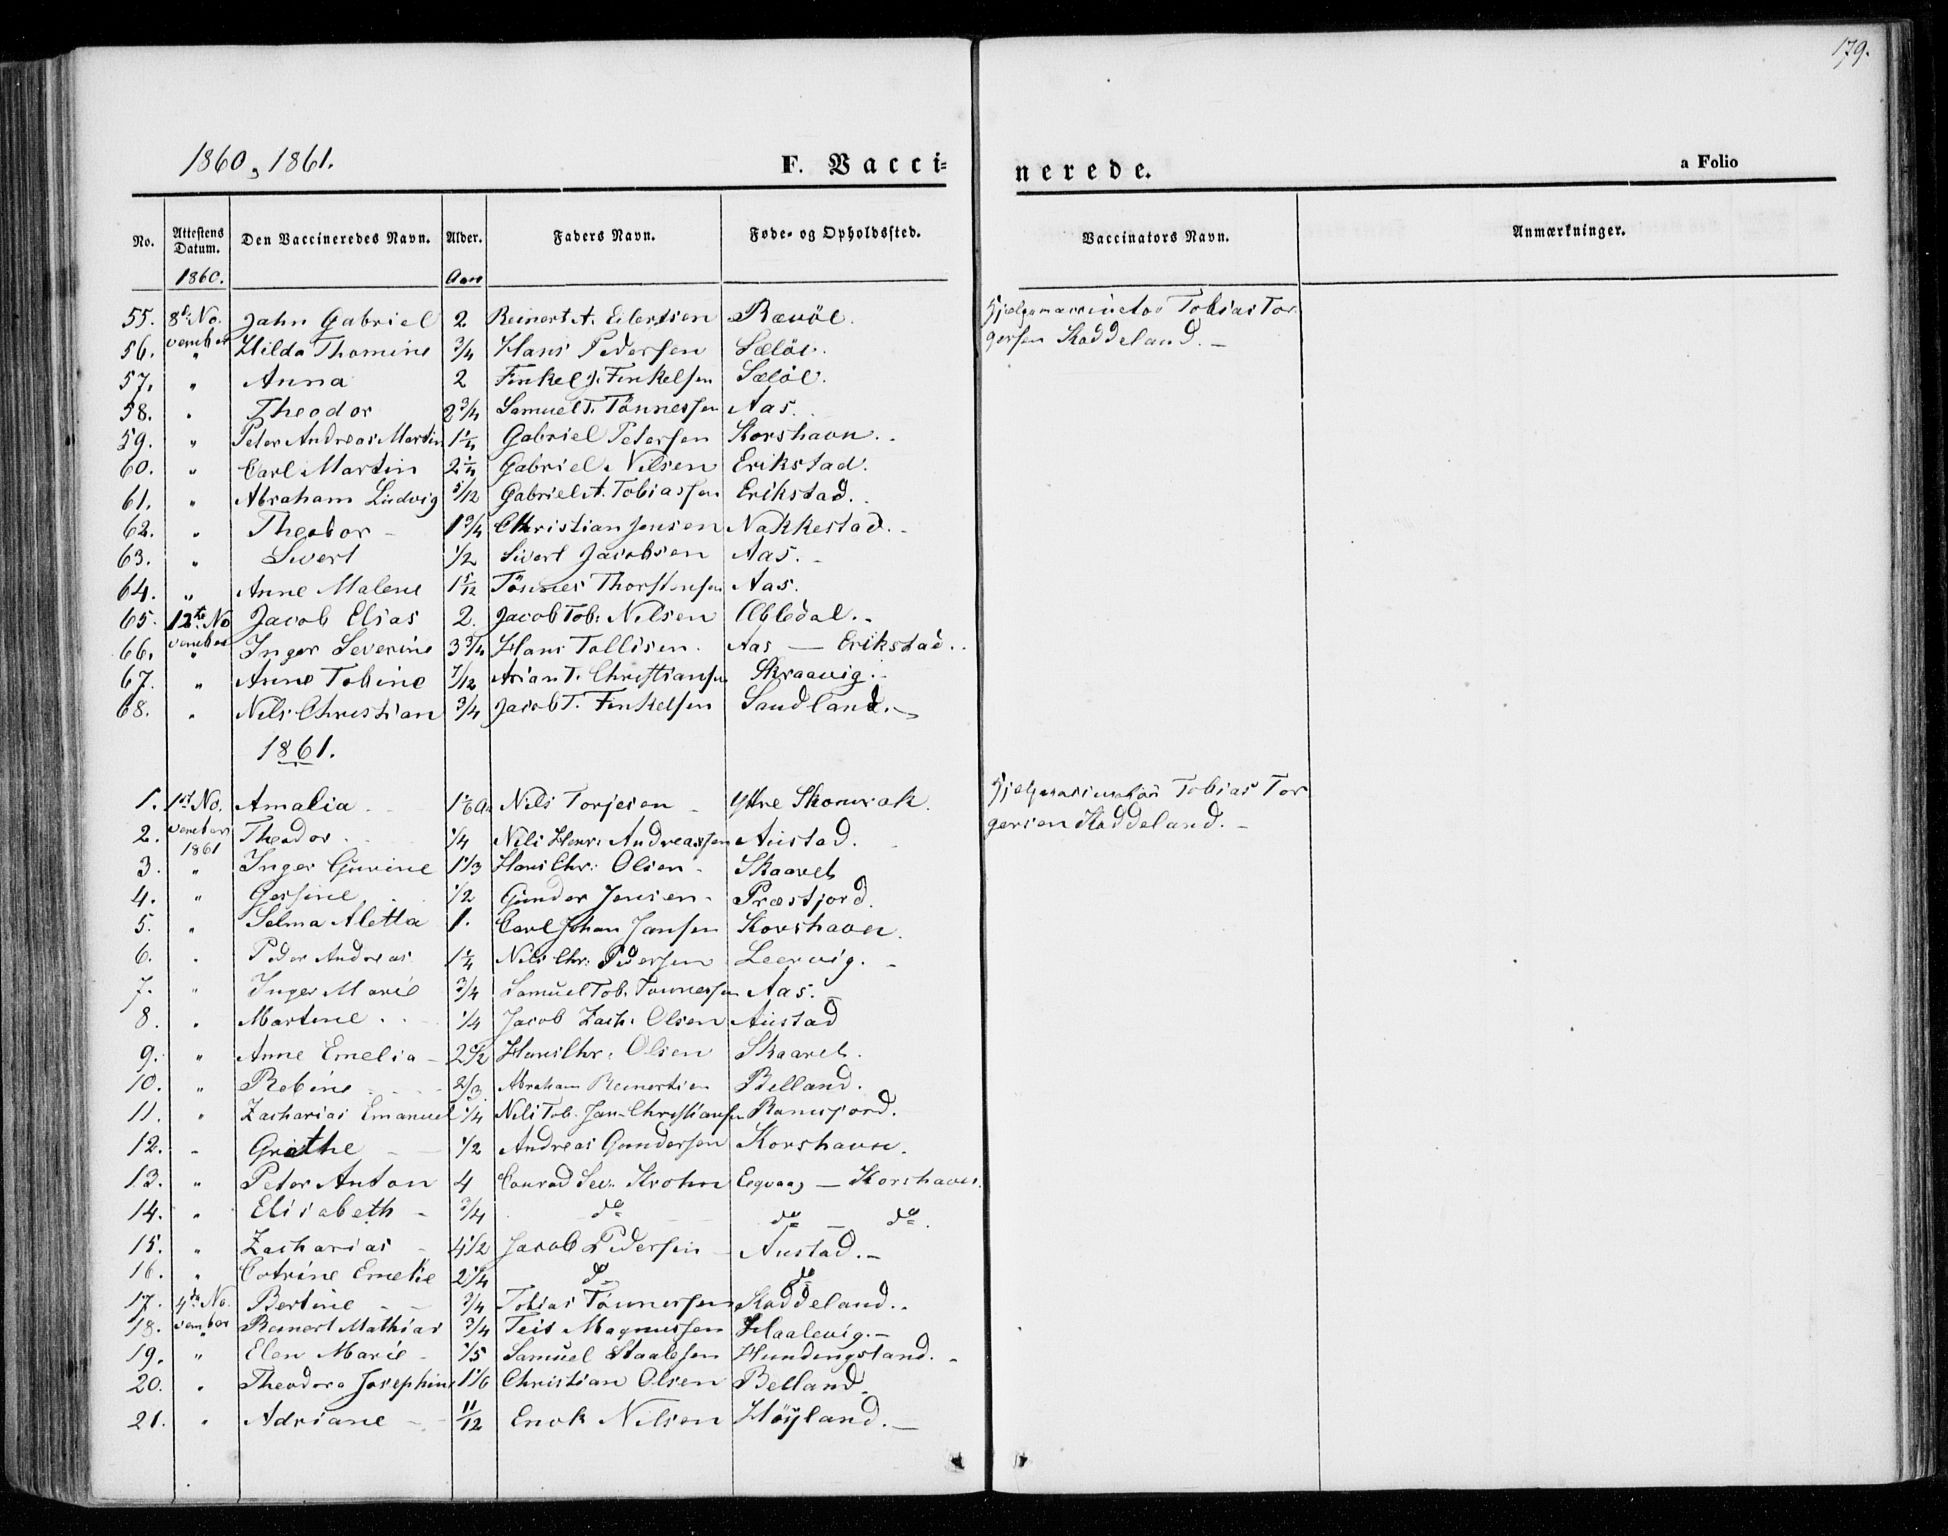 179.
1860, 1861. F. Vaccinerede. a Folio
No. Attestens Datum. Den Vaccineredes Navn. Alder. Faders Navn. Føde- og Opholdssted. Vaccinators Navn. Anmærkninger.
1860. Aar
55. 8de No- Jahn Gabriel 2 Reinert A. Eilertsen Rævöl. Hjelpevaccinator Tobias Tor-
56. vember " Hilda Thomine 3/4 Hans Pedersen Sælör. gersen Kaddeland. -
57. " Anna 2 Finkel J. Finkelsen Sælöl.
58. " Theodor 2 3/4 Samuel T. Tönnessen Aas.
59. " Peter Andreas Martin 1 1/4 Gabriel Petersen Korshavn.
60. " Carl Martin 2 1/4 Gabriel Nilsen Erikstad.
61. " Abraham Ludvig 5/12 Gabriel A. Tobiassen Erikstad.
62. " Theodor - 1 3/4 Christian Jensen Nakkestad. -
63. " Sivert 1/2 Sivert Jacobsen Aas. -
64. " Anne Malene 1 5/12 Tönnes Thorstensen Aas.
65. 12te No- Jacob Elias 2. Jacob Tob: Nilsen Abledal. -
66. vember " Inger Severine 3 3/4 Hans Tollisen. Aas — Erikstad.
67. " Anne Tobine 7/12 Arian T. Christiansen Skraavig.
68. " Nils Christian 3/4 Jacob T. Finkelsen Sandland. -
1861.
1. 1st No- Amalia 1 1/6 a. Nils Torjesen - Yttre Skomrak. Hjelpevaccinatör Tobias Tor-
2. vember 1861 Theodor 1/4 Nils Henr: Andreassen Austad. gersen Kaddeland. -
3. " Inger Gurine 1 1/3 Hans Chr: Olsen - Skaaret
4. " Gesine 1/2 Gunder Jensen - Præstjord.
5. " Selma Aletta 1. Carl Johan Jansen Korshavn.
6. " Peder Andreas 1 1/4 Nils Chr: Pedersen Leervig. -
7. " Inger Marie 3/4 Samuel Tob. Tönnessen Aas. -
8. " Martine 1/4 Jacob Zach: Olsen Austad
9. " Anne Emelia - 2 1/2 Hans Chr: Olsen Skaaret.
10. " Rebine 2/3. Abraham Reinertsen Belland.
11. " Zacharias Emanuel 1/4 Nils Tob. Jan. Christiansen Ramsjord.
12. - Grethe - 1/2 Andreas Gundersen Korshavn.
13. " Peter Anton 4 Conrad Sev. Krohn Eqvaag — Korshavn.
14. " Elisabeth - 3/4 do do - do.
15. " Zacharias - 4 1/2 Jacob Pedersen - Austad. -
16. " Cotrine Emelie 2 1/4 do do
17. 4de No- Bertine - 3/4 Tobias Tönnessen Kaddeland.
18. vember " Reinert Mathias 3/4 Teis Magnussen Haalevig. -
19. " Elen Marie - 1/5 Samuel Staalesen Hundingsland. -
20. " Theodora Josephine 1 1/6 Christian Olsen Belland.
21. " Adriane - 11/12 Enok Nilsen Höyland. -